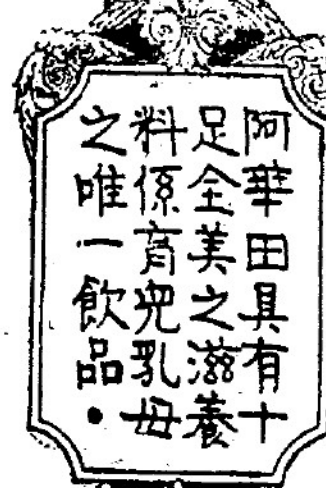 阿華田具有十
足全美之滋養
料係育兒乳母
之唯一飲品•